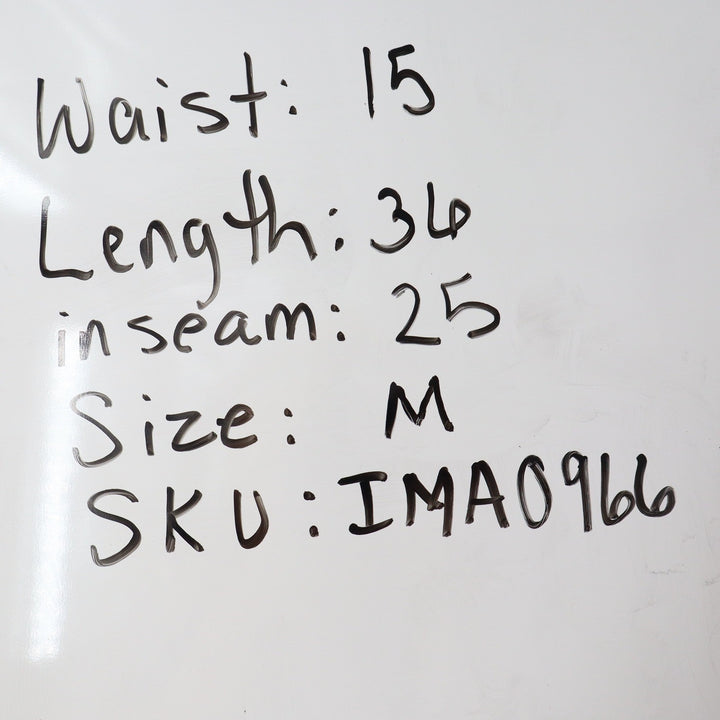 Waist: 15
Length: 36
inseam: 25
Size: M
SKU: IMA0966